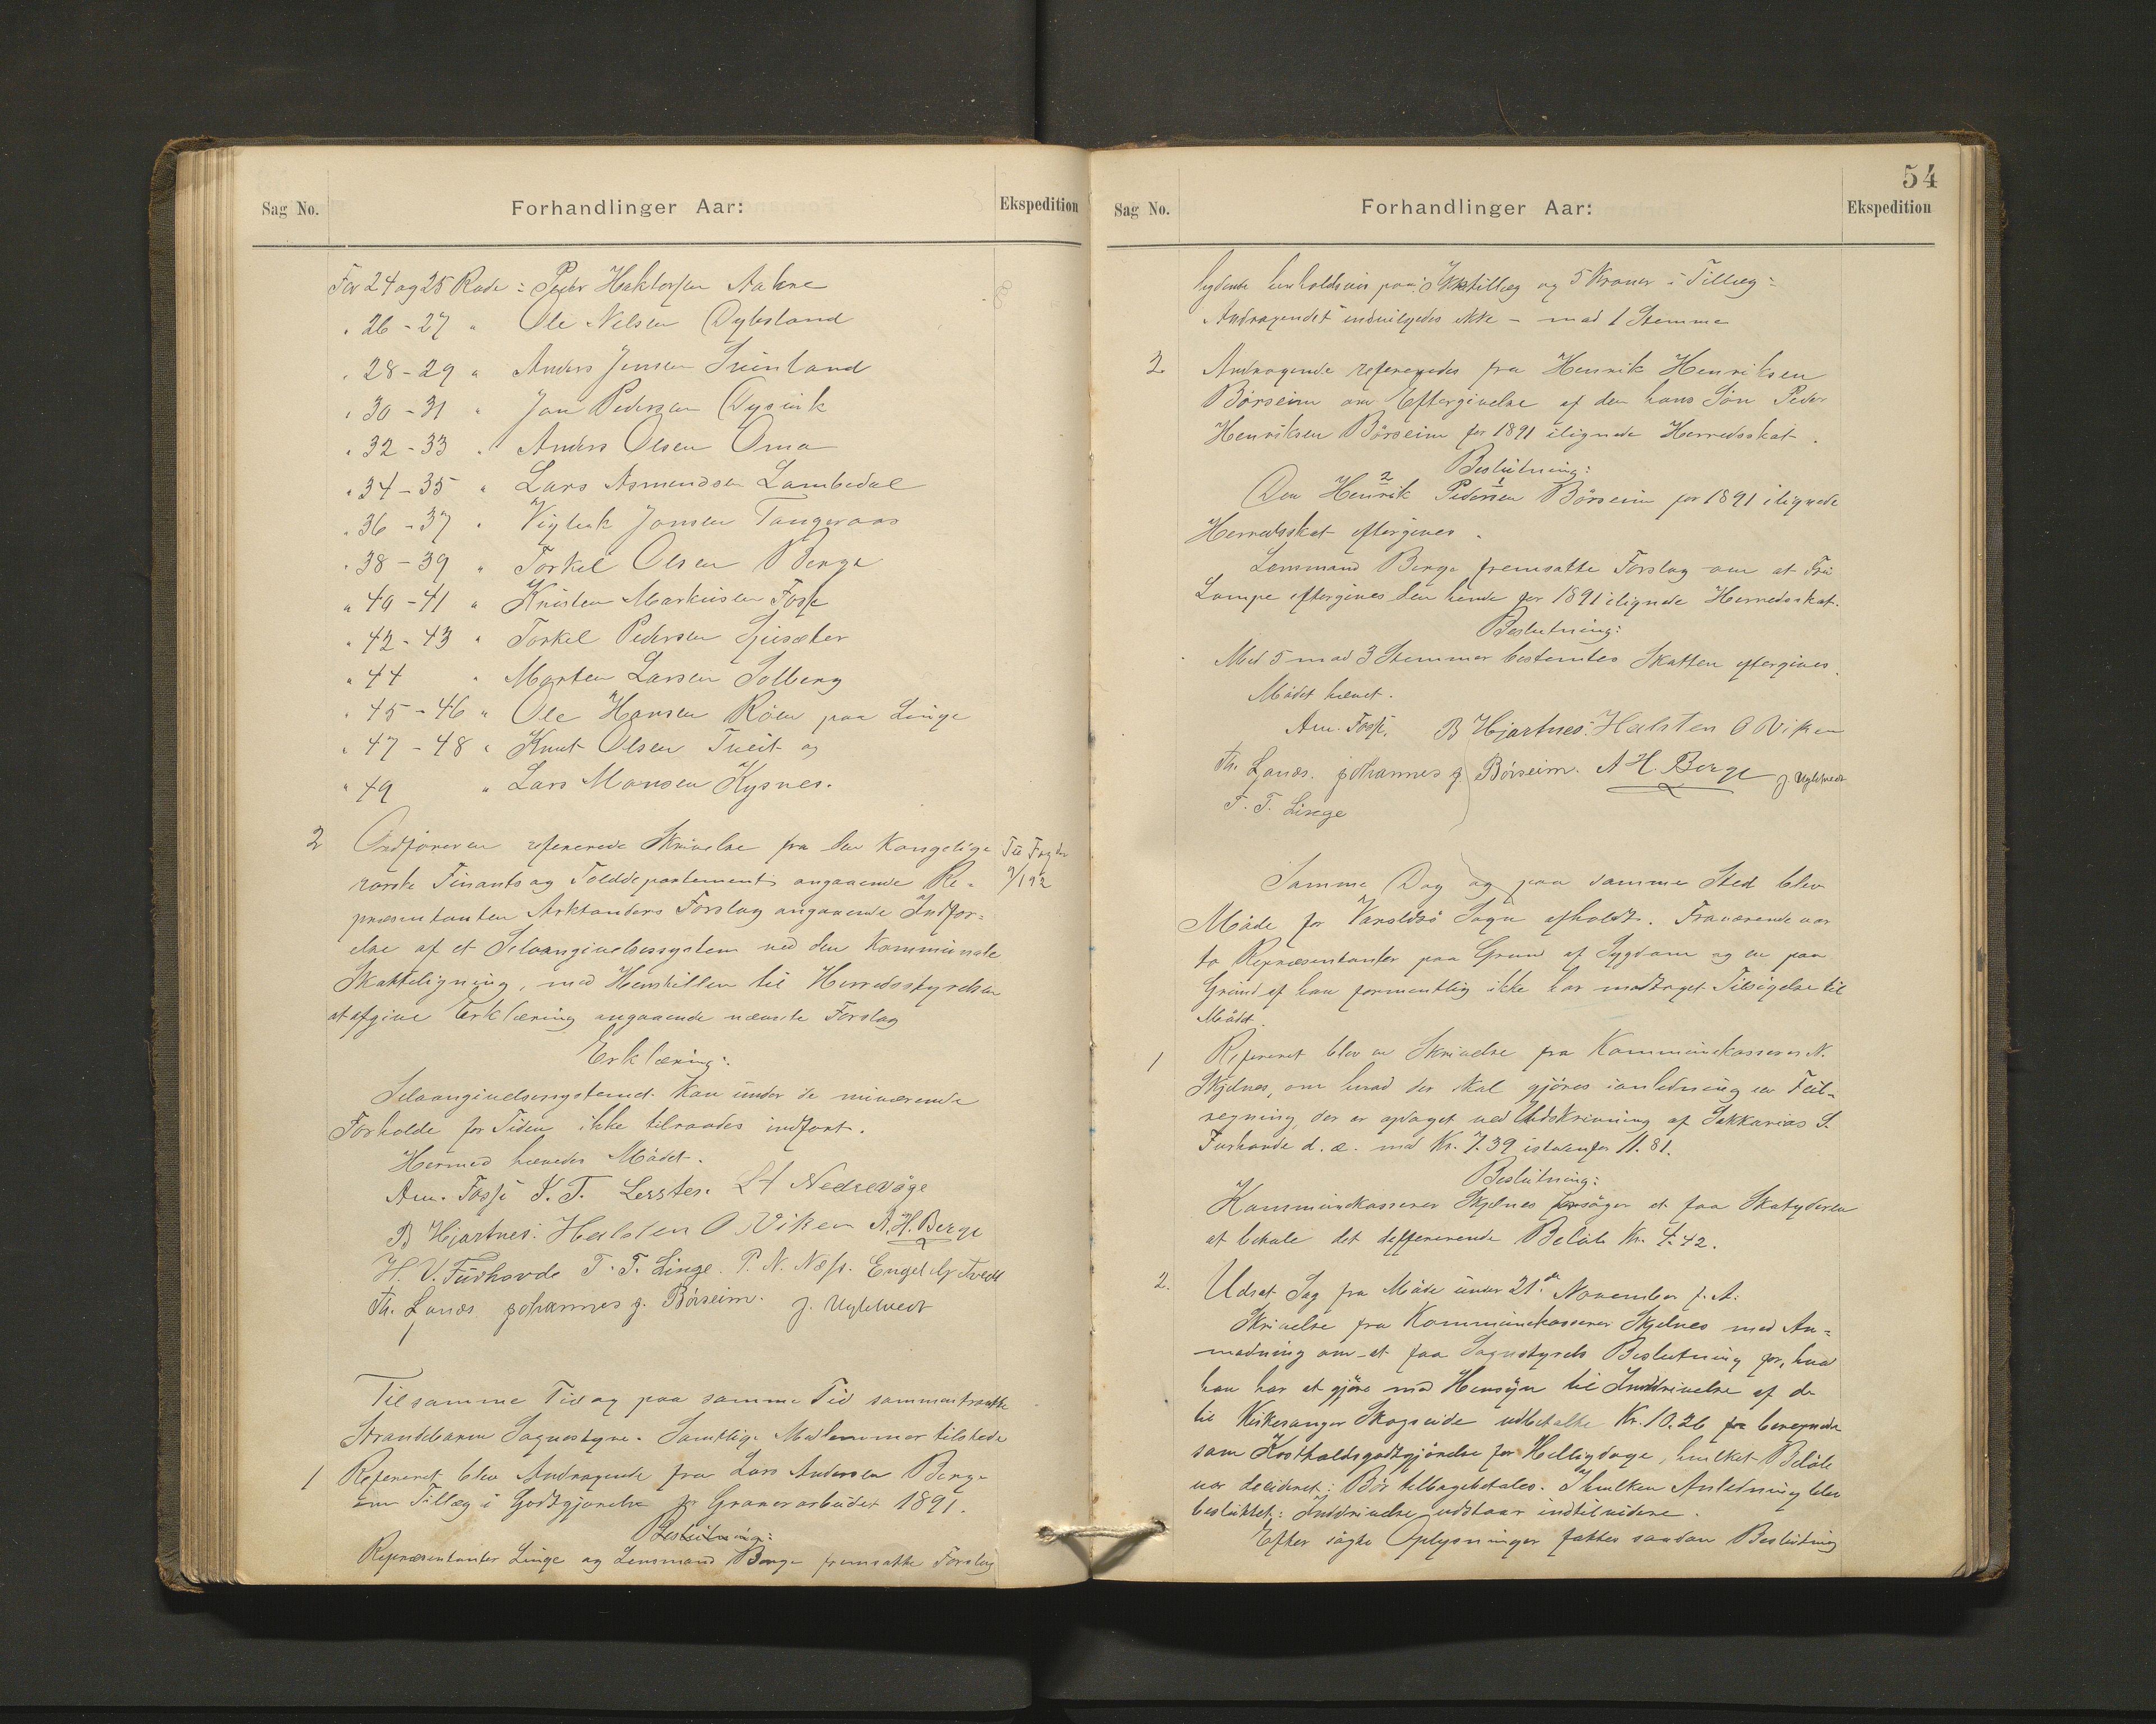 Sag No. Forhandlinger Aar: Ekspedition
For 24 og 25 Rode: Peder Haktorsen Aakre
" 26 - 27 " Ole Nilsen Dybsland
" 28 - 29 " Anders Jensen Sunland
" 30 - 31 " Jon Pedersen Dysvik
" 32 - 33 " Anders Olsen Oma
" 34 - 35 " Lars Asmundsen Lambedal
" 36 - 37 " Vigleik Jonsen Tangeraas
" 38 - 39 " Torkel Olsen Berge
" 40 - 41 " Kristen Markusen Fosse
" 42 - 43 " Torkel Pedersen
" 44 " Morten Larsen Solberg
" 45 - 46 " Ole Hansen Röen paa Linge
" 47 - 48 " Knut Olsen Tveit og
" 49 " Lars Monsen Kysnes.
2 Ordföreren refererede Skrivelse fra den Kongelige
Til Fogden
norske Finants og Tolddepartement angaaende Re-
9/1 92
præsentanten Arktanders Forslag angaaende Indfor-
else af et Selvangivelsessystem ved den Kommunale
Skatteligning, med Henstillen til Herredsstyrelsen
at afgive Erklæring angaaende nævnte Forslag
Erklæring:
Selvangivelsessystemet kan under de nuværende
Forholde for Tiden ikke tilraades indfört.
Hermed hævedes Mödet.
Am. Fosse S. T. Leuter. L H Nedrevåge
B Hjartnes. Halsten O Viken A. H. Berge
H. V. Furhovde T. T. Linge. P. N. Næss. Engel Tvedt
Th. Lonæs Johannes J. Börseim. J. Uglehvedt
Til samme Tid og paa samme Tid sammentraadte
Strandebarm Sognestyre. Samtlige Medlemmer tilstede
1 Refereret blev Andragende fra Lars Andersen Berge
om Tillæg i Godtgjörelse for Graverarbeidet 1891.
Beslutning:
Repræsentanter Linge og Lensmand Berge fremsatte Forslag
54
Sag No. Forhandlinger Aar: Ekspedition
lydende henholdsvis paa: Ikketillæg og 5 Kroner i Tillæg:
Andragendet indvilgedes ikke - mod 1 Stemme
2. Andragende refereredes fra Henrik Henriksen
Börseim om Eftergivelse af den hans Sön Peder
Henriksen Börseim for 1891 ilignede Herredsskat.
Beslutning:
2 1
Den Henrik Pedersen Börseim for 1891 ilignede
Herredsskat eftergives.
Lensmand Berge fremsatte Forslag om at Fru
Lampe eftergives den hende for 1891 ilignede Herredsskat.
Beslutning:
Med 5 mod 3 Stemmer bestemtes Skatten eftergives.
Mödet hævet.
Am. Fosse. B Hjartnes. Halsten O Viken
Th. Lonæs. Johannes J. Börseim. A H. Berge J. Uglehvedt
T. T. Linge
Samme Dag og paa samme Sted blev
Möde for Varaldsö Sogn afholdt. Fraværende var
to Repræsentanter paa Grund af Sygdom og en paa
Grund af han formentlig ikke har modtaget Tilsigelse til
Mödet.
1 Refereret blev en Skrivelse fra Kommunekasserer N.
Skjelnes, om hvad der skal gjöres i anledning en Feil-
regning, der er opdaget ved Udskrivning af Sakkarias S.
Furhovde d. æ. med Kr. 7.39 istedenfor 11.81.
Beslutning:
Kommunekasserer Skjelnes forsöger at faa Skatyderen
at betale det defererende Belöb Kr. 4.42.
2. Udsat Sag fra Möde under 21de November f. A:
Skrivelse fra Kommunekasserer Skjelnes med An-
modning om at faa Sognestyrets Beslutning for, hvad
han har at gjöre med Hensyn til Inddrivelse af de
til Kirkesanger Skogseide udbetalte Kr. 10.26 for beregnede
som Kostholdsgodtgjörelse for Helligdage, hvilket Belöb
var decideret: Bör tilbagebetales. I hvilken Anledning blev
besluttet: Inddrivelse udstaar indtil videre.
Efter sögte Oplysninger fattes saadan Beslutning